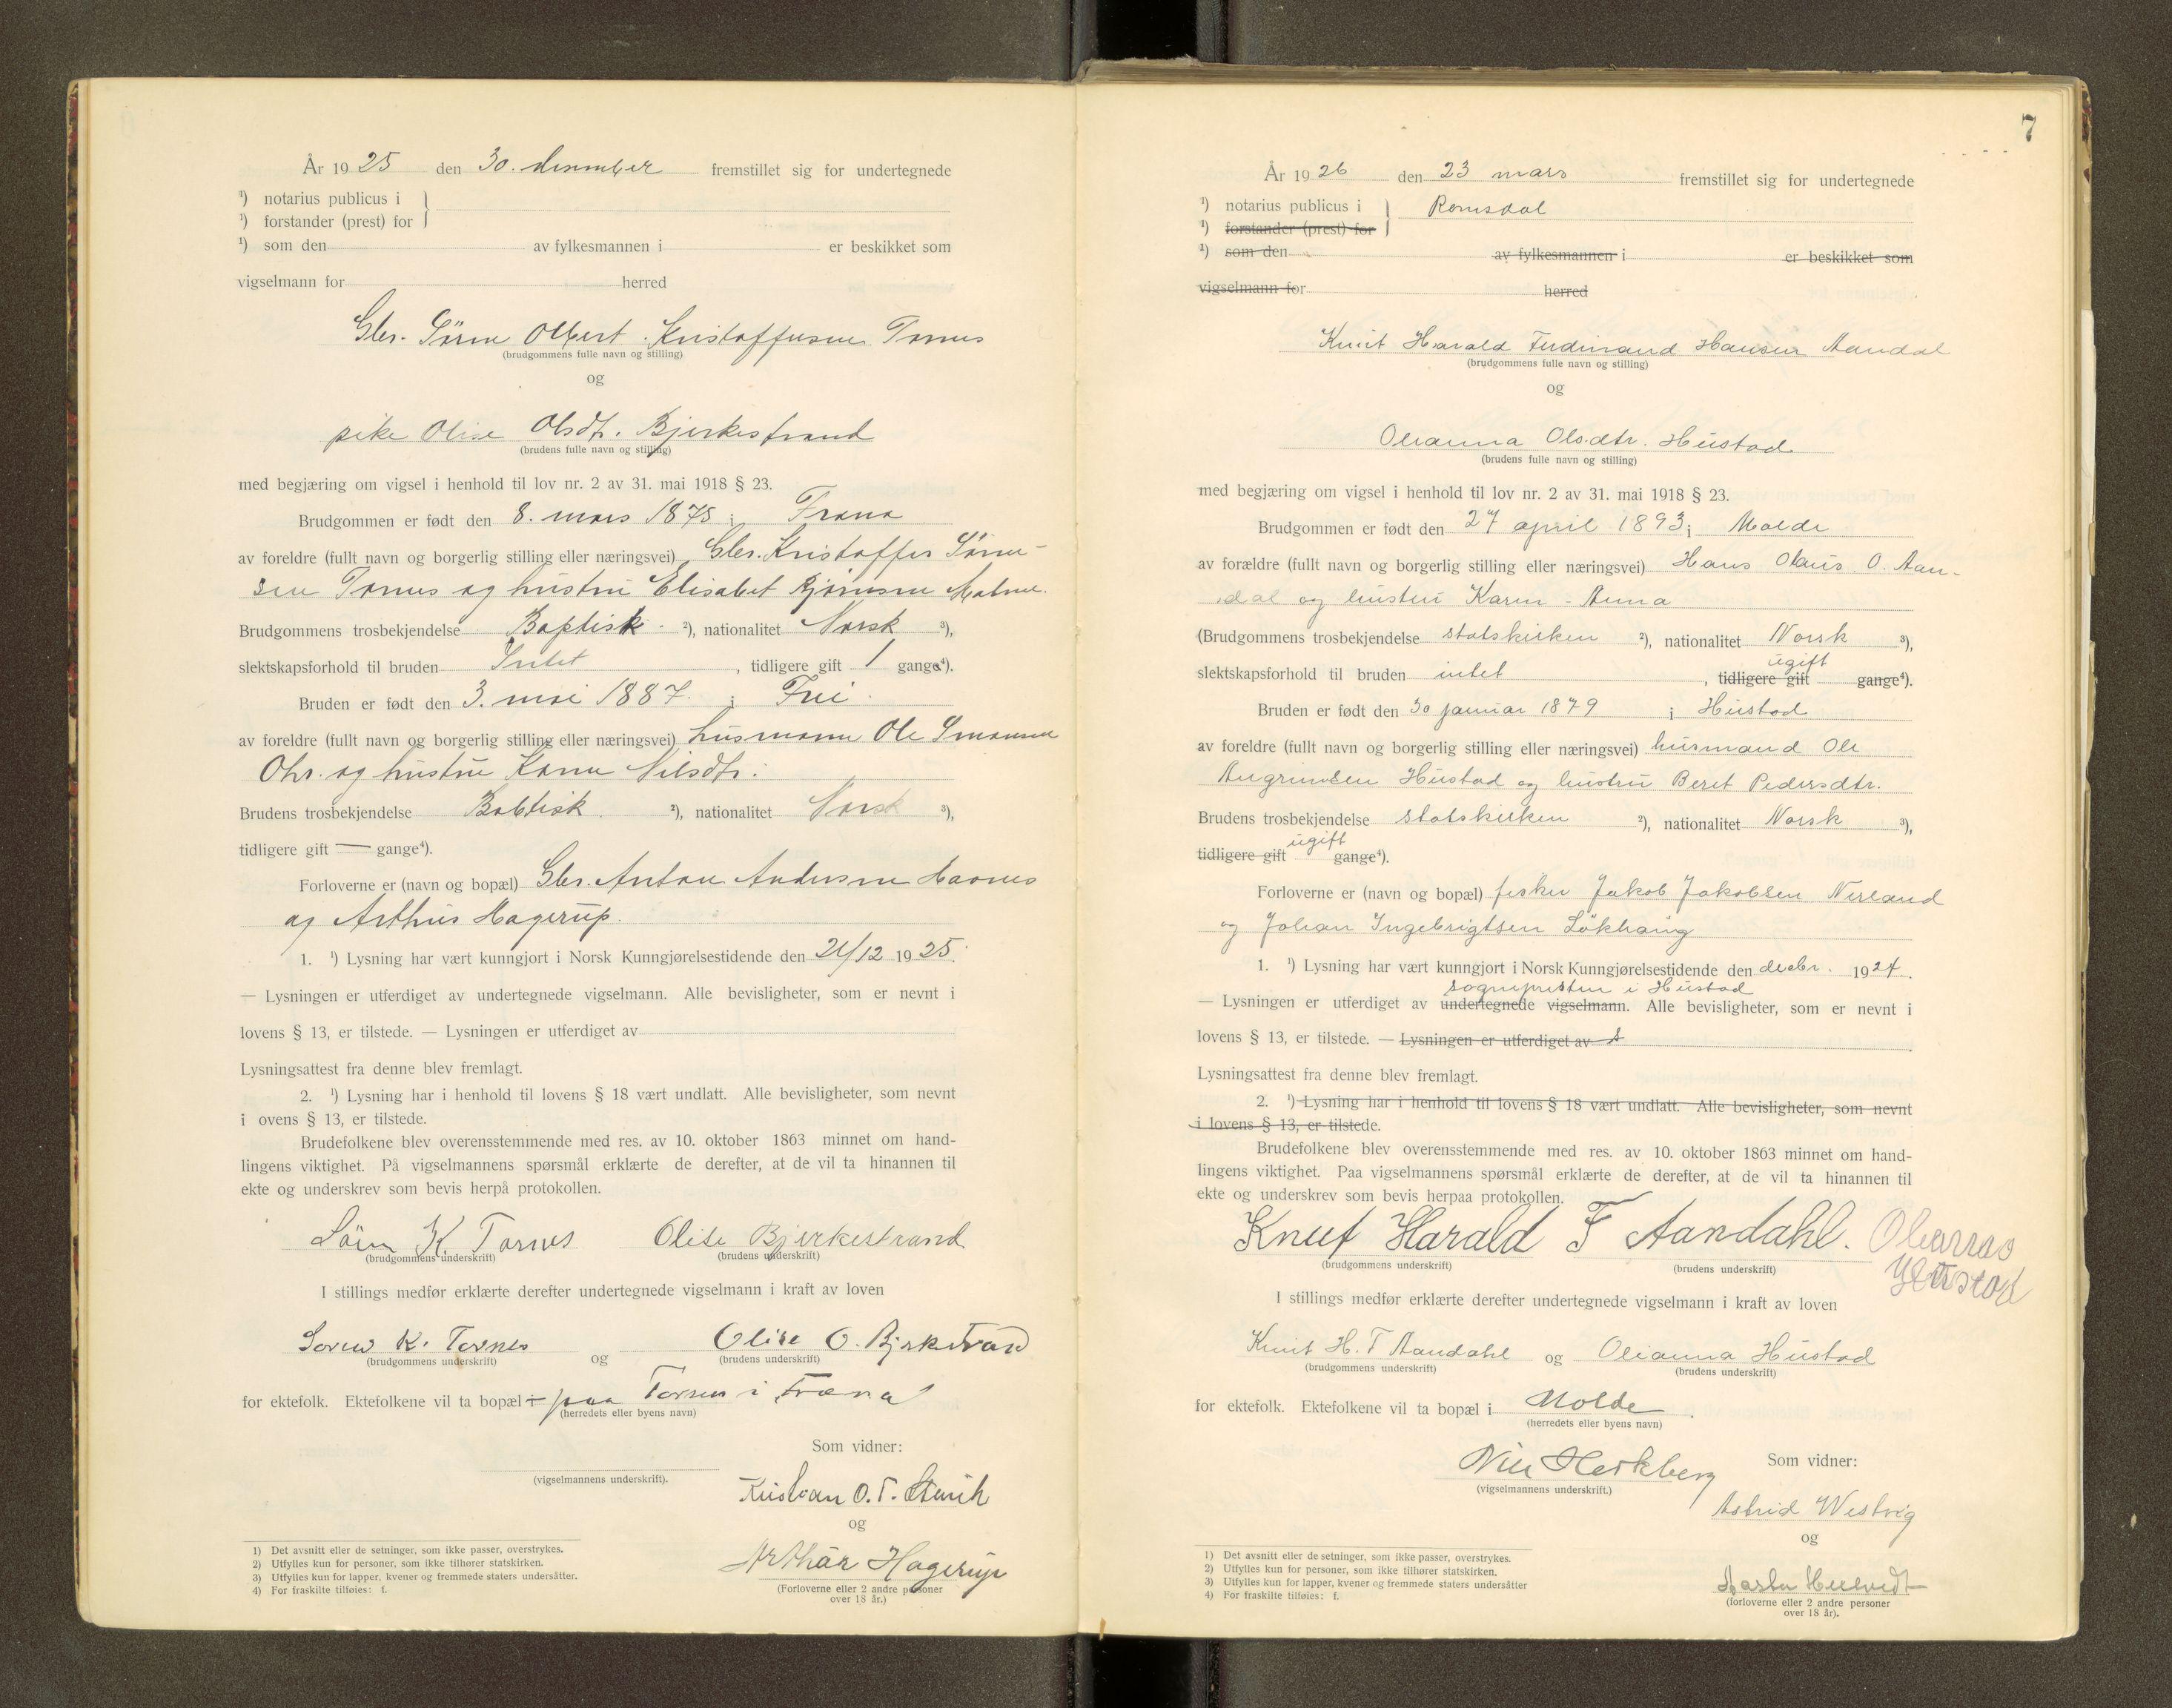 År 1925 den 30. desember fremstillet sig for undertegnede
¹) notarius publicus i
¹) forstander (prest) for
¹) som den av fylkesmannen i er beskikket som
vigselmann for herred
Gbr. Sørен Olbert Kristoffersen Tornes
(brudgommens fulle navn og stilling)
og
pike Olise Olsdtr. Bjerkestrand
(brudens fulle navn og stilling)
med begjæring om vigsel i henhold til lov nr. 2 av 31. mai 1918 § 23.
Brudgommen er født den 8. mars 1875 i Fræna
av foreldre (fullt navn og borgerlig stilling eller næringsvei) Gbr. Kristoffer Søren-
sen Tornes og hustru Elisabet Bjørnsen Malme.
Brudgommens trosbekjendelse Baptisk. ²), nationalitet Norsk ³),
slektskapsforhold til bruden Intet, tidligere gift 1 gange⁴).
Bruden er født den 3. mai 1887. i Frei.
av foreldre (fullt navn og borgerlig stilling eller næringsvei) husmann Ole
og hustru Nilsdtr.
Brudens trosbekjendelse Babtisk ²), nationalitet Norsk ³),
tidligere gift — gange⁴).
Forloverne er (navn og bopæl) Gbr. Anton Andersen Havnes
og Arthur Hagerup.
1. ¹) Lysning har vært kunngjort i Norsk Kunngjørelsestidende den 21/12 1925.
— Lysningen er utferdiget av undertegnede vigselmann. Alle bevisligheter, som er nevnt i
lovens § 13, er tilstede. — Lysningen er utferdiget av
Lysningsattest fra denne blev fremlagt.
2. ¹) Lysning har i henhold til lovens § 18 vært undlatt. Alle bevisligheter, som nevnt
i ovens § 13, er tilstede.
Brudefolkene blev overensstemmende med res. av 10. oktober 1863 minnet om hand-
lingens viktighet. På vigselmannens spørsmål erklærte de derefter, at de vil ta hinannen til
ekte og underskrev som bevis herpå protokollen.
Søren K. Tornes Olise Bjerkestrand
(brudgommens underskrift) (brudens underskrift)
I stillings medfør erklærte derefter undertegnede vigselmann i kraft av loven
Soren K. Tornes og Olise O. Bjrkestrand
(brudgommens underskrift) (brudens underskrift)
for ektefolk. Ektefolkene vil ta bopæl i paa Tornes i Fræna
(herredets eller byens navn)
Som vidner:
(vigselmannens underskrift).
Kristian O. T.
og
Arthur Hagerup
(Forloverne eller 2 andre personer
over 18 år.)
1) Det avsnitt eller de setninger, som ikke passer, overstrykes.
2) Utfylles kun for personer, som ikke tilhører statskirken.
3) Utfylles kun for lapper, kvener og fremmede staters undersåtter.
4) For fraskilte tilføies: f.
7
År 1926 den 23 mars fremstillet sig for undertegnede
¹) notarius publicus i Romsdal
¹) forstander (prest) for
¹) som den av fylkesmannen i er beskikket som
vigselmann for herred
Knut Harald Ferdinand Hansen Aandal
(brudgommens fulle navn og stilling)
og
Olianna Olsdtr. Hustad
(brudens fulle navn og stilling)
med begjæring om vigsel i henhold til lov nr. 2 av 31. mai 1918 § 23.
Brudgommen er født den 27 april 1893 i Molde
av forældre (fullt navn og borgerlig stilling eller næringsvei) Hans Olaus O. Aan-
dal og hustru Karen Anna
(Brudgommens trosbekjendelse statskirken ²), nationalitet Norsk ³),
slektskapsforhold til bruden intet, tidligere gift ugift gange⁴).
Bruden er født den 30 januar 1879 i Hustad
av foreldre (fullt navn og borgerlig stilling eller næringsvei) husmand Ole
Angrimsen Hustad og hustru Beret Pedersdtr.
Brudens trosbekjendelse statskirken ²), nationalitet Norsk ³),
tidligere gift ugift gange⁴).
Forloverne er (navn og bopæl) fisker Jakob Jakobsen Nerland
og Johan Ingebrigtsen Løkhaug
1. ¹) Lysning har vært kunngjort i Norsk Kunngjørelsestidende den decbr. 1924.
sognepresten i Hustad
— Lysningen er utferdiget av undertegnede vigselmann. Alle bevisligheter, som er nevnt i
lovens § 13, er tilstede. — Lysningen er utferdiget av
Lysningsattest fra denne blev fremlagt.
2. ¹) Lysning har i henhold til lovens § 18 vært undlatt. Alle bevisligheter, som nevnt
i lovens § 13, er tilstede.
Brudefolkene blev overensstemmende med res. av 10. oktober 1863 minnet om hand-
lingens viktighet. Paa vigselmannens spørsmål erklærte de derefter, at de vil ta hinannen til
ekte og underskrev som bevis herpaa protokollen.
Knut Harald F Aandahl. Olianna
Hustad
(brudgommens underskrift) (brudens underskrift)
I stillings medfør erklærte derefter undertegnede vigselmann i kraft av loven
Knut H. F Aandahl og Olianna Hustad
(brudgommens underskrift) (brudens underskrift)
for ektefolk. Ektefolkene vil ta bopæl i Molde.
(herredets eller byens navn)
Som vidner:
(vigselmannens underskrift.)
Astrid Westvig
og
(forloverne eller 2 andre personer
over 18 år).
1) Det avsnitt eller de setninger, som ikke passer, overstrykes.
2) Utfylles kun for personer, som ikke tilhører statskirken.
3) Utfylles kun for lapper, kvener og fremmede staters undersåtter
4) For fraskilte tilføies: f.